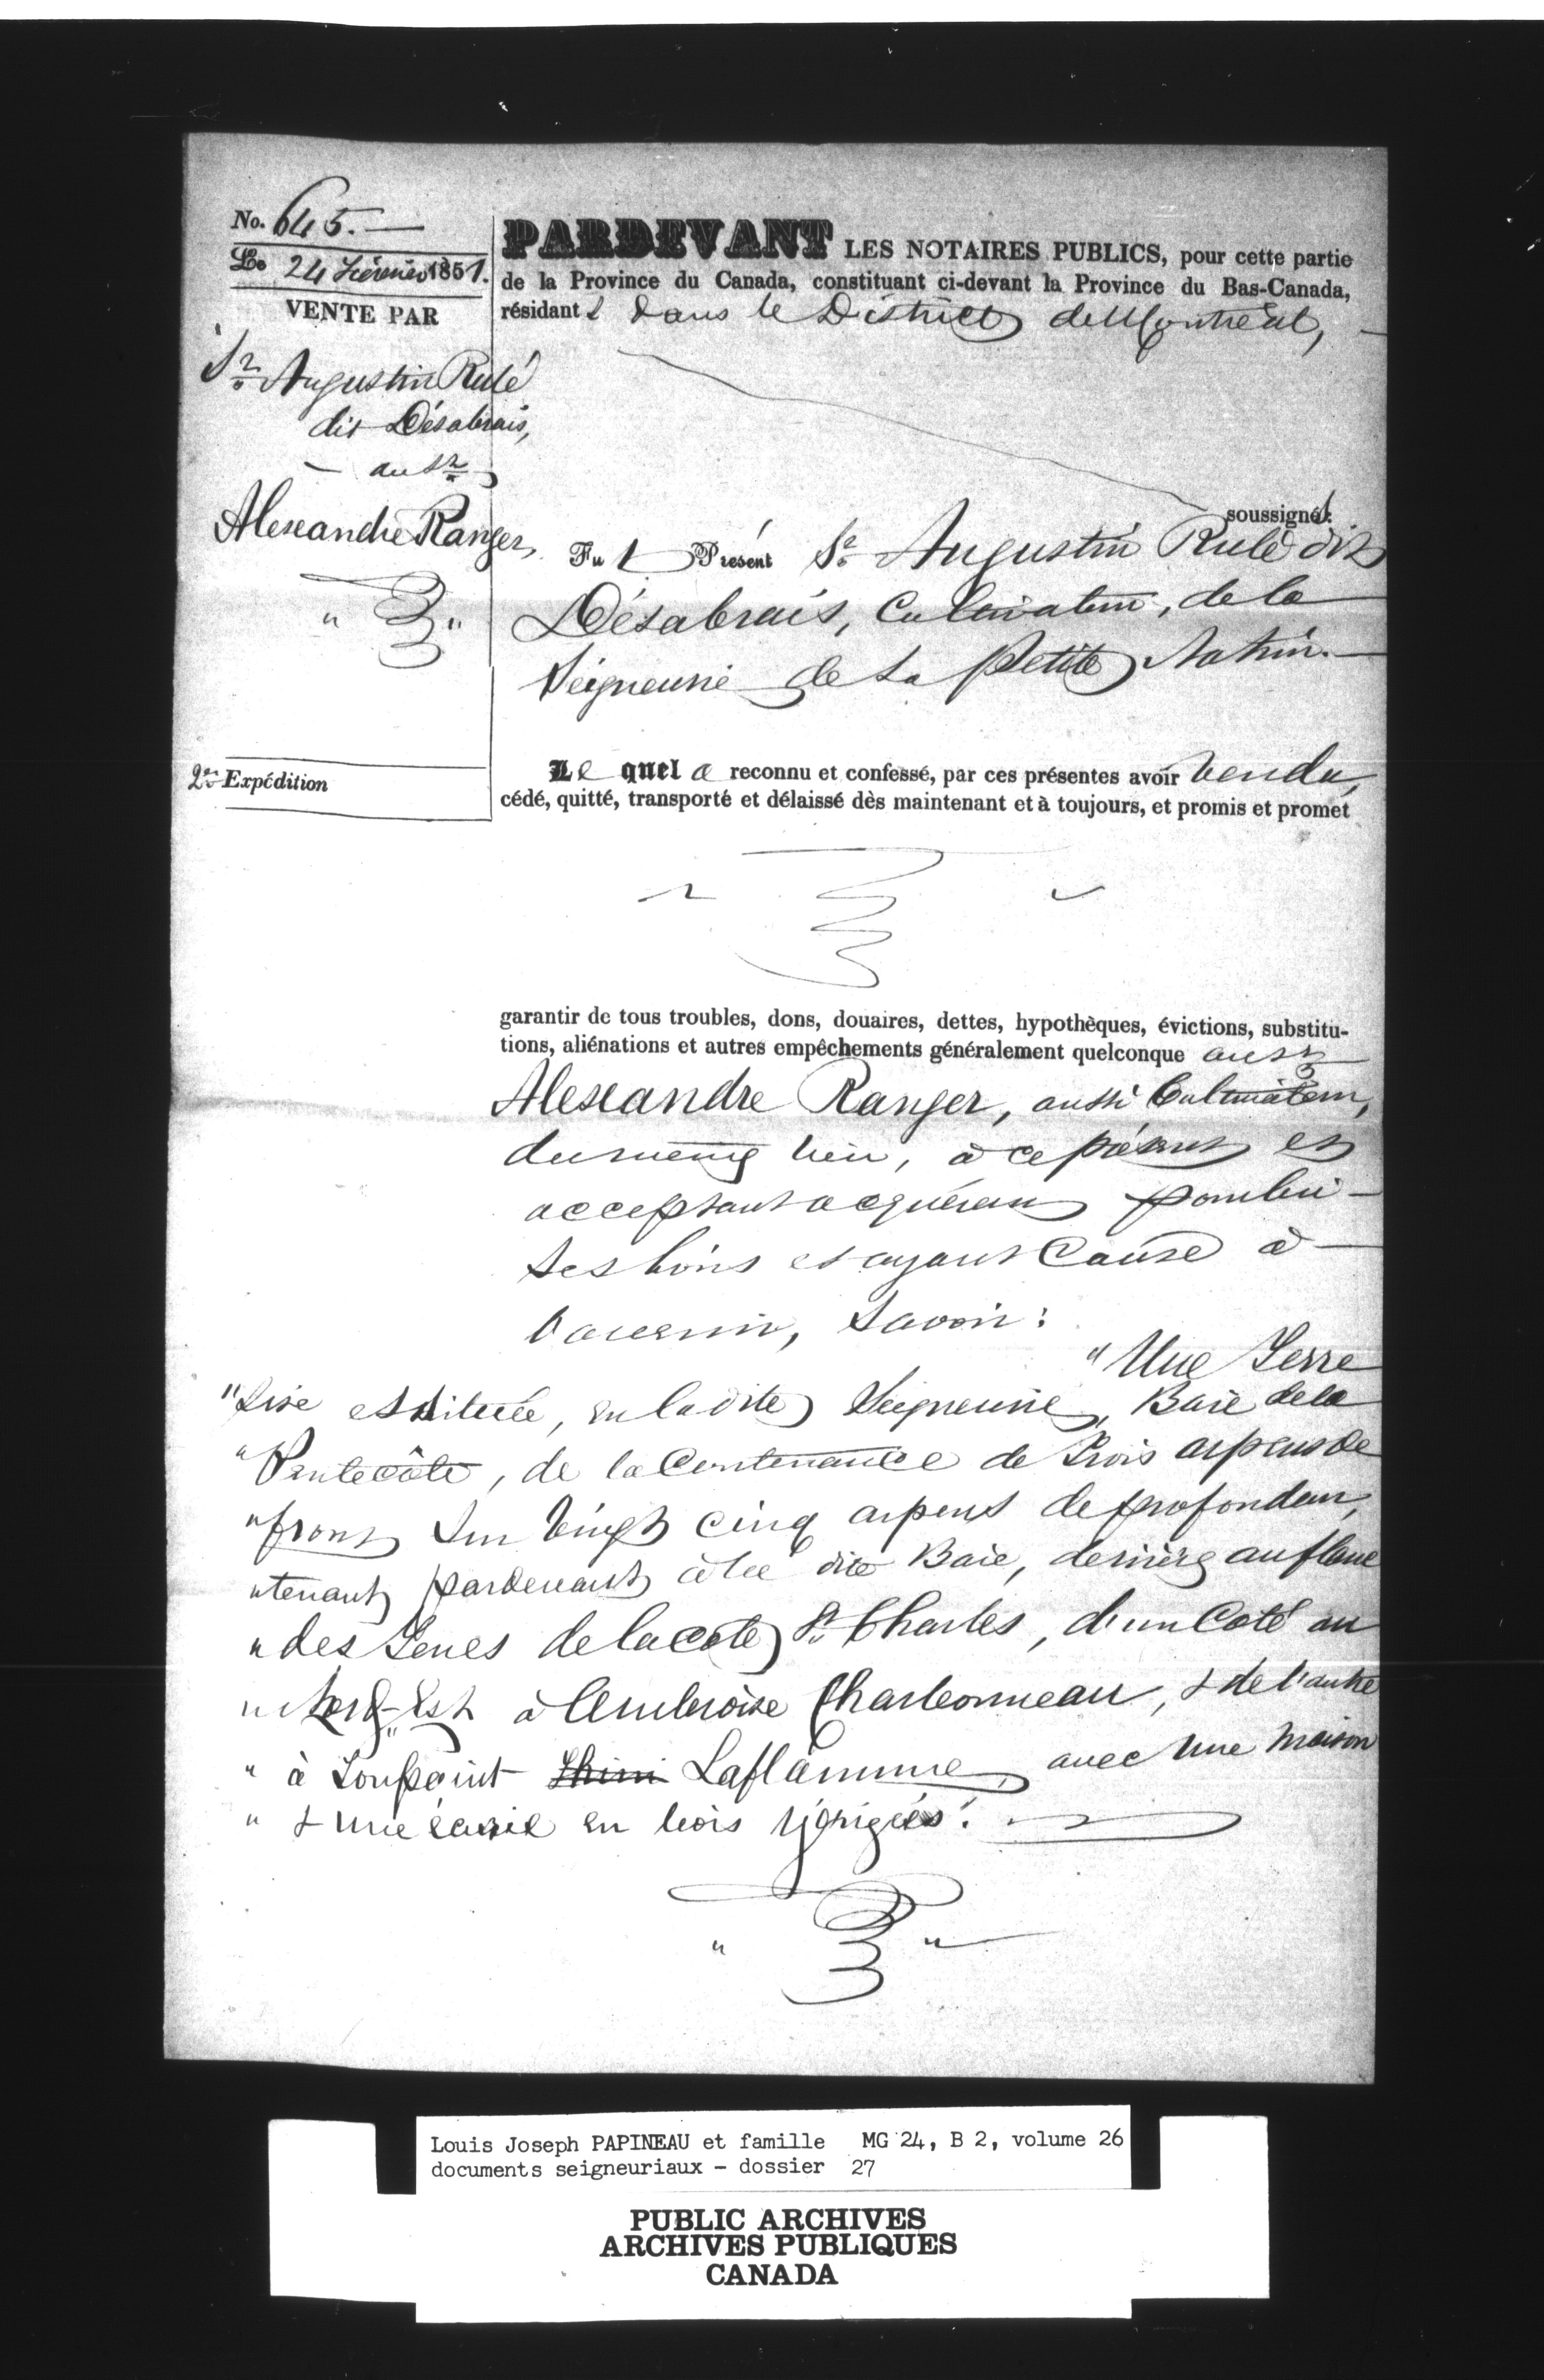 No. 645.
Le 24 Février 1851.
VENTE PAR
Sr. Augustin Rulé
dit Désabrais,
au Sr.
Alexandre Ranger,
2e. Expédition
PARDEVANT LES NOTAIRES PUBLICS, pour cette partie
de la Province du Canada, constituant ci-devant la Province du Bas-Canada,
résidants dans le District de Montréal,
soussignés:
Fut Présent Sr. Augustin Rulé dit
Désabrais, Cultivateur, de la
Seigneurie de La Petite Nation.
Le quel a reconnu et confessé, par ces présentes avoir Vendu,
cédé, quitté, transporté et délaissé dès maintenant et à toujours, et promis et promet
garantir de tous troubles, dons, douaires, dettes, hypothèques, évictions, substitu-
tions, aliénations et autres empêchements généralement quelconque au Sr.
Alexandre Ranger, aussi Cultivateur,
du même lieu, à ce présent et
acceptant acquéreur pour lui
ses hoirs et ayant Cause à
l'avenir, Savoir:
"Une Terre
"sise et située, en la dite Seigneurie, Baie de la
"Pentecôte, de la Contenance de Trois arpens de
"front sur Vingt cinq arpens de profondeur,
"tenant pardevant à la dite Baie, derrière au flanc
"des Terres de la cote St. Charles, d'un Coté au
"Nord-Est à Ambroise Charbonneau, & de l'autre
"à Toupaint Laflamme, avec Une Maison
"& une écurie en bois y érigées.
Louis Joseph PAPINEAU et famille MG 24, B 2, volume 26
documents seigneuriaux - dossier 27
PUBLIC ARCHIVES
ARCHIVES PUBLIQUES
CANADA